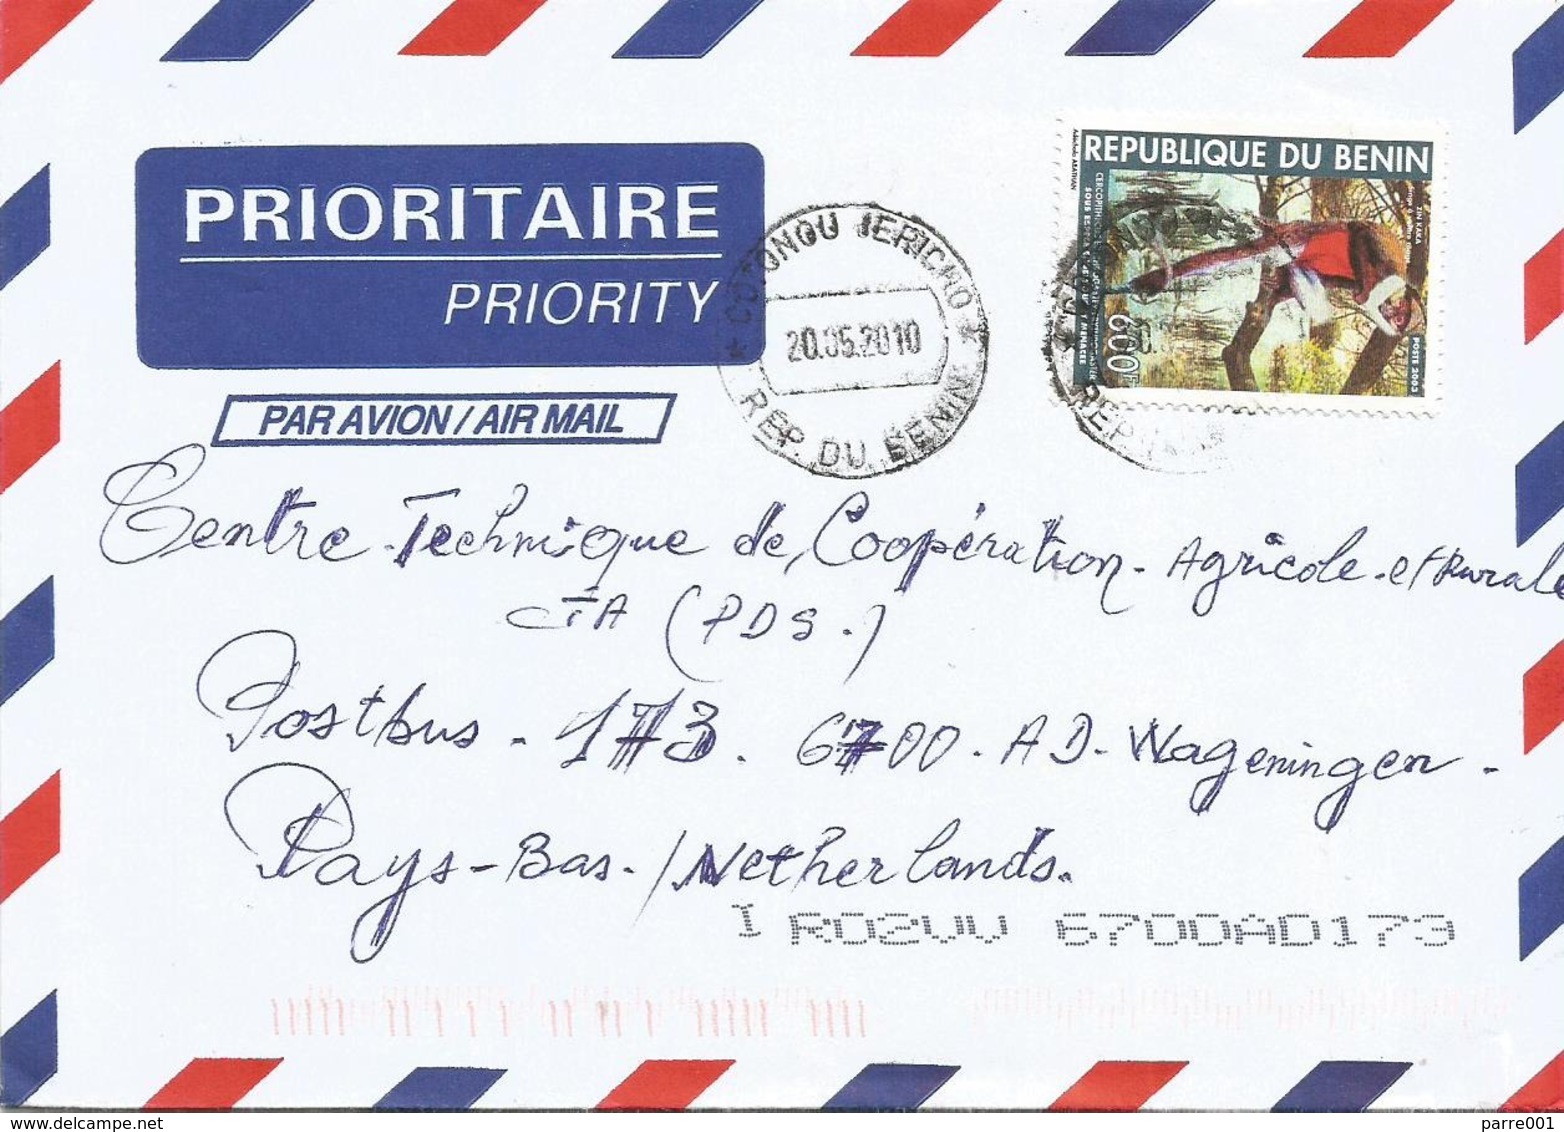 PRIORITAIRE
PRIORITY
PAR AVION / AIR MAIL
COTONOU JERICHO
20.05.2010
REP. DU BENIN
REPUBLIQUE DU BENIN
600F
POSTE 2003
REP
Centre Technique de Coopération Agricole et Rurale
CTA (PDS.)
Postbus - 173. 6700 - AD - Wageningen -
Pays-Bas. / Netherlands.
I ROZUU 6700AD173
parre001